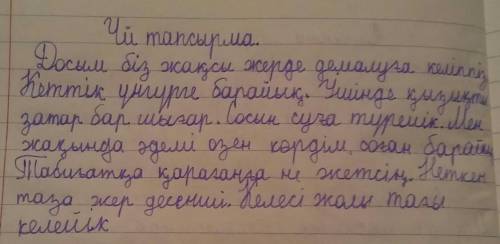 Үй тапсырма.
Досым біз жақсы жерде демалуға келіппіз
Кеттік үнгирге барайық. Ішінде қызықты
затар бар шығар. Сосын суға түрейік. Мен
жақында әдемі өзен көрдім, соған барайық
Табиғатқа қарағанға не жетсің. Неткен
таза жер десеңші. Келесі жолы тағы
келейік